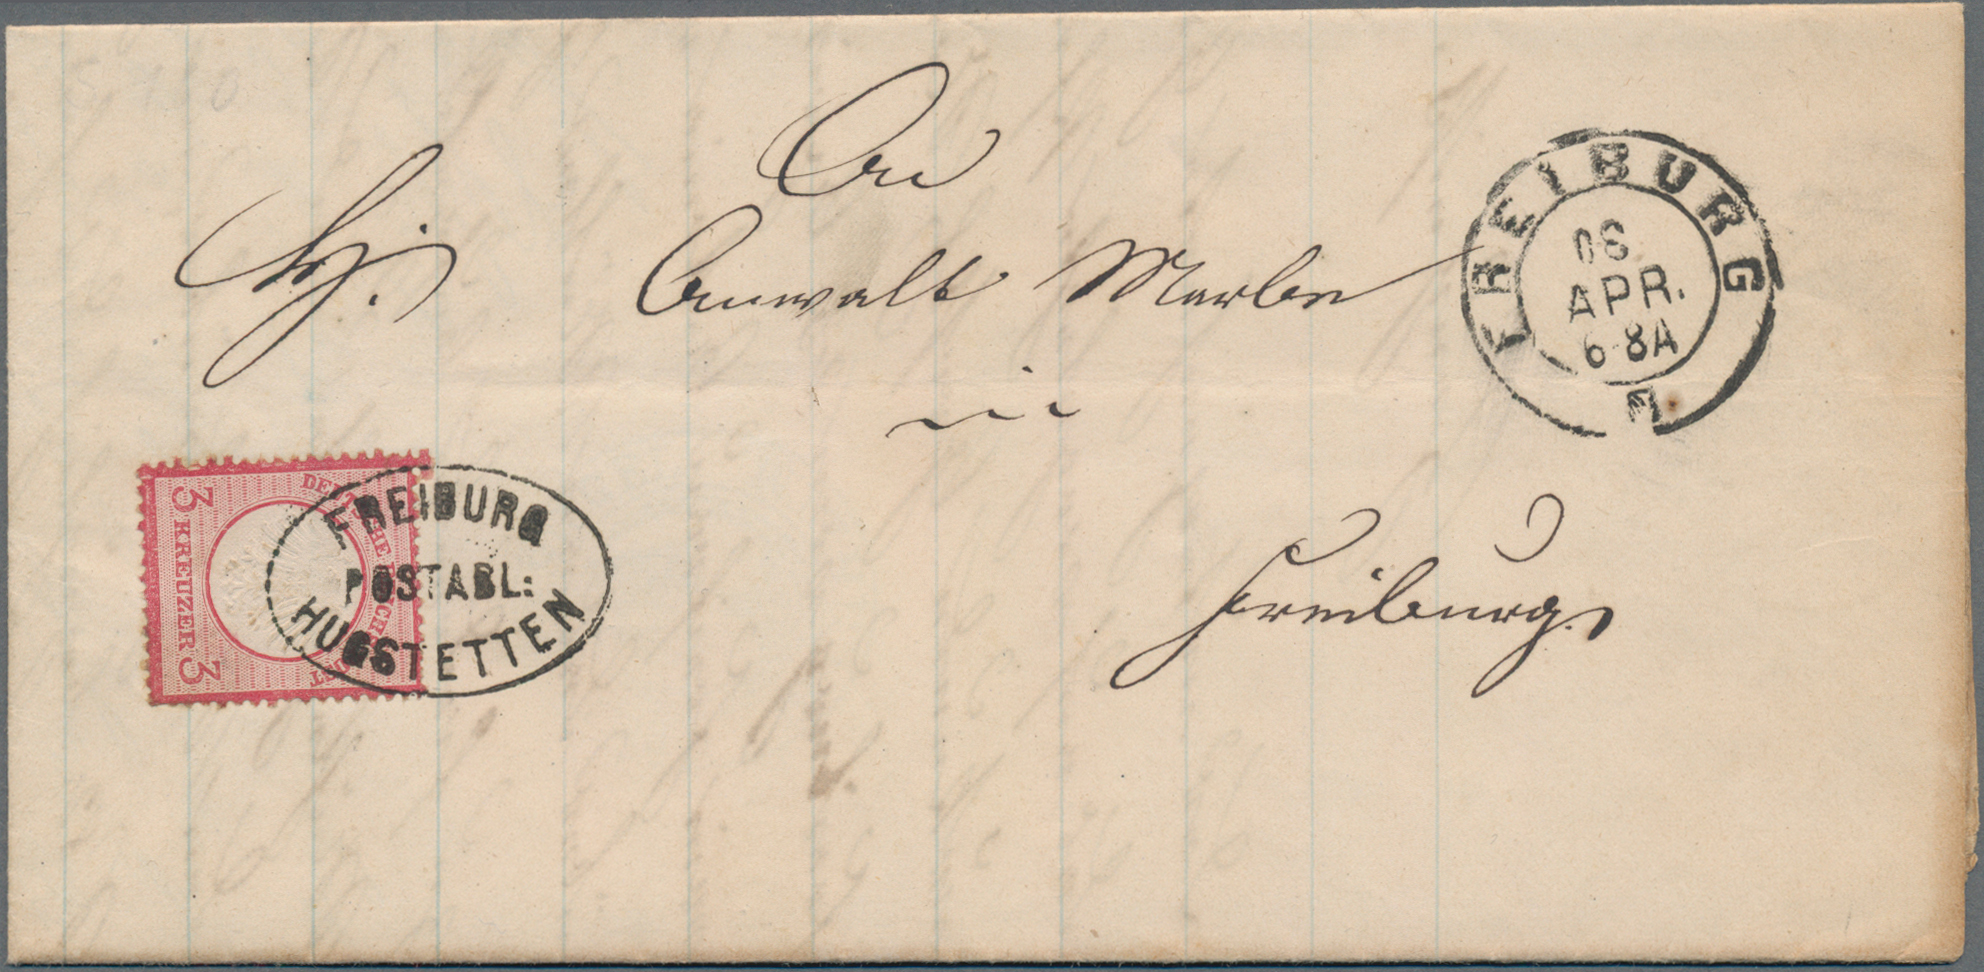 An
Hr.
Anwalt Marbe
in
Freiburg.
FREIBURG
08
APR.
6-8A
FREIBURG
POSTABL:
HUGSTETTEN
DEUTSCHE REICHS POST
3 KREUZER 3